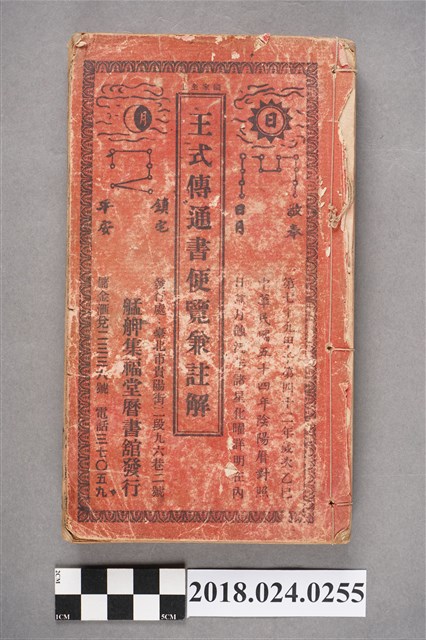 日
敬奉
日月
第七十九甲子第四十二年歲次乙巳
中華民國五十四年陰陽曆對照
王式傳通書便覽兼註解
月
鎮宅
平安
發行處 臺北市貴陽街二段九六巷二號
艋舺集福堂曆書舘發行
電話三七〇五九
2CM
1CM
5CM
2018.024.0255